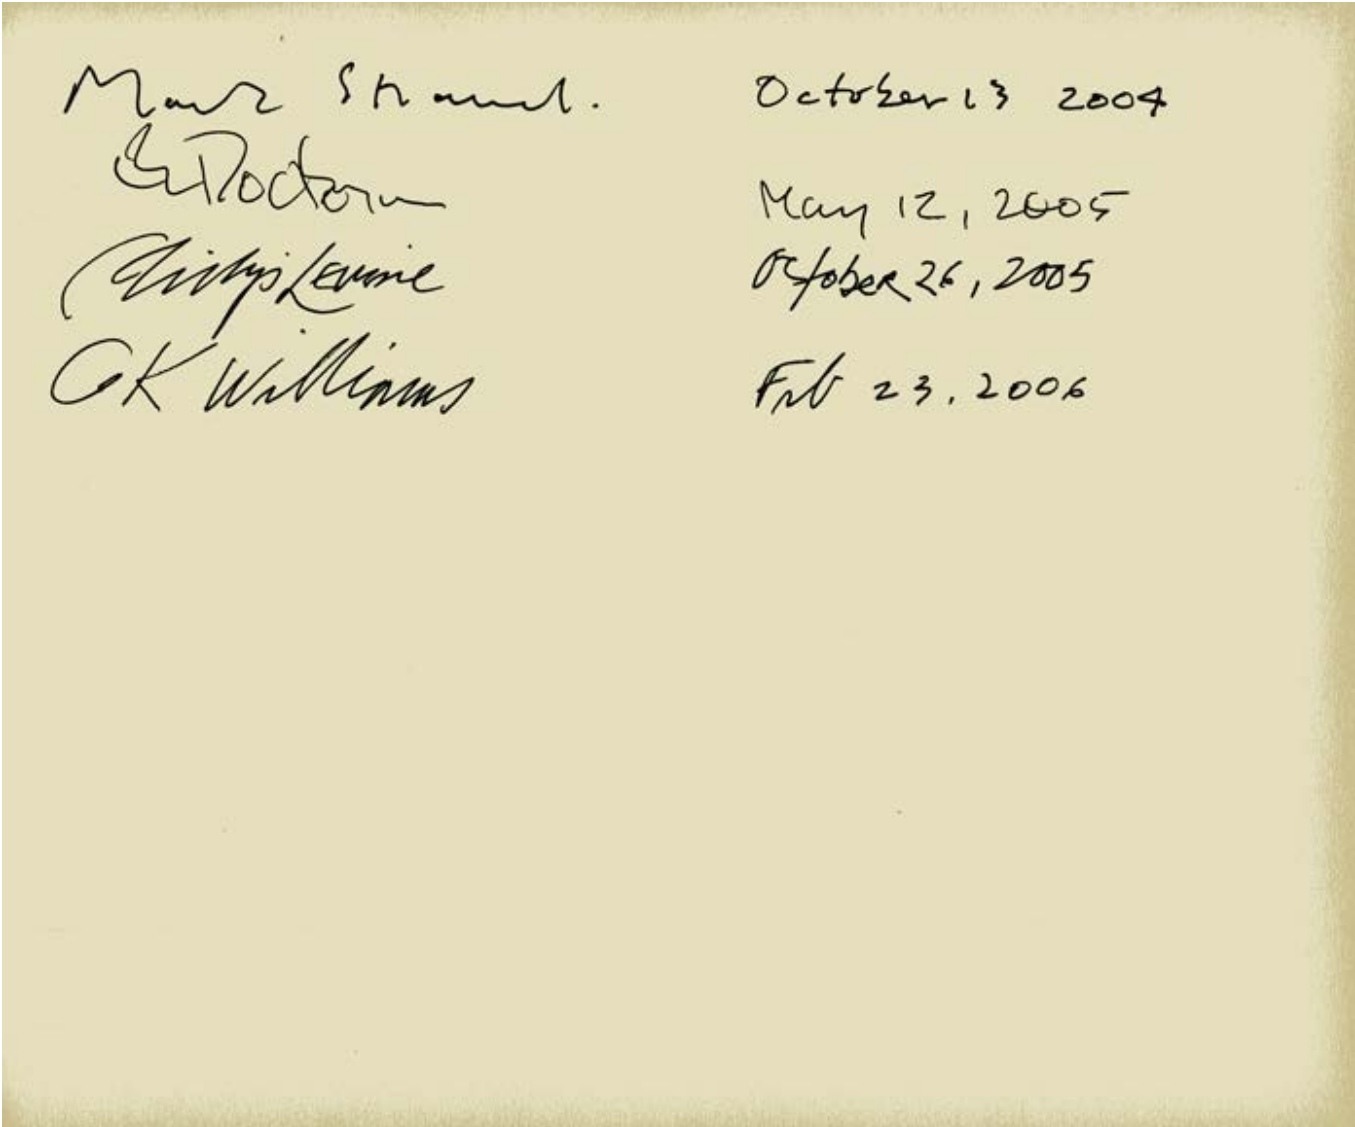 Mark Strand. October 13 2004
EL Doctorow May 12, 2005
Philip Levine October 26, 2005
CK Williams Feb 23, 2006